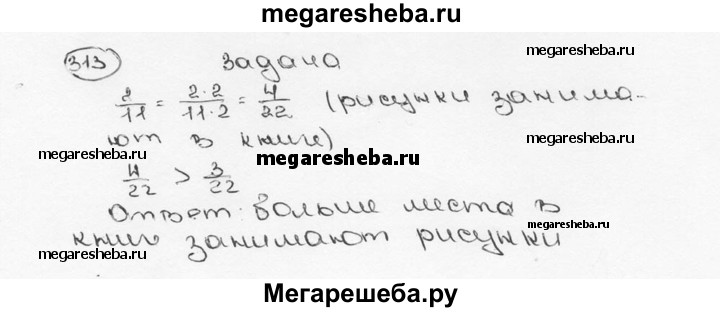 megaresheba.ru
313 Задача megaresheba.ru
2/11 = 2·2/11·2 = 4/22 (рисунки занима-
megaresheba.ru
ют в книге)
megaresheba.ru megaresheba.ru
4/22 > 3/22
Ответ: больше места в
megaresheba.ru
книге занимают рисунки
megaresheba.ru megaresheba.ru
Мегарешеба.ру